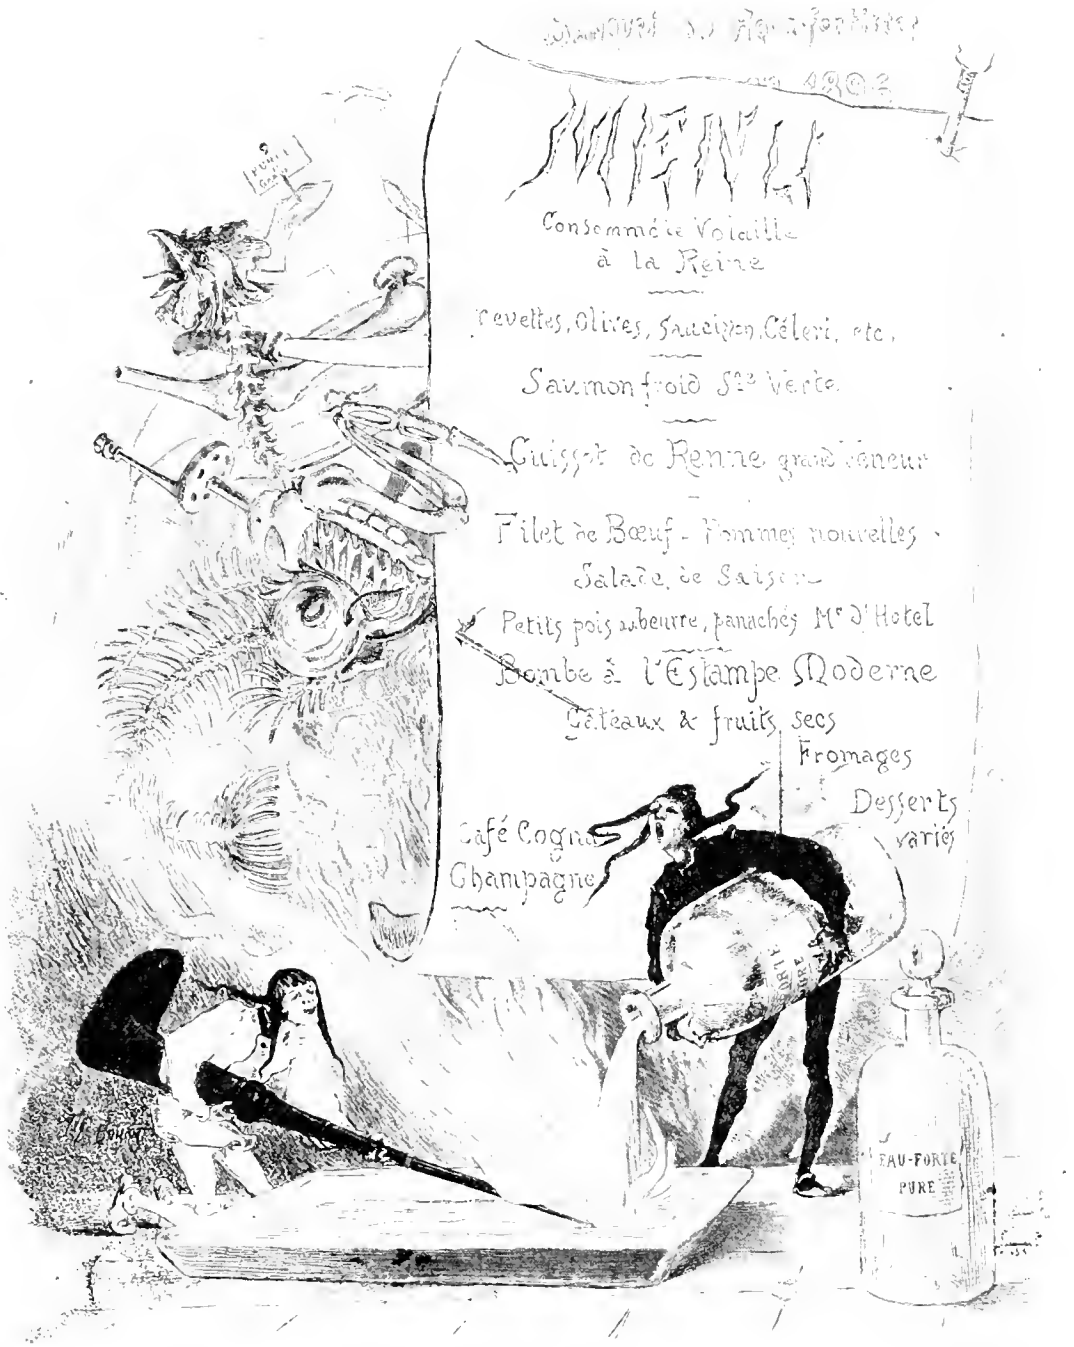 MENU
Consommé de Volaille
à la Reine
revettes, Olives, Saucisson, Céleri, etc,
Saumon froid Sce Verte
Cuissot de Renne grand Veneur
Filet de Bœuf - Pommes nouvelles
Salade de Saison
Petits pois au beurre, panachés Me d'Hotel
Bombe à l'Estampe Moderne
Gâteaux & fruits secs
Fromages
Desserts
variés
Café Cogna
Champagne
EAU-FORTE
PURE